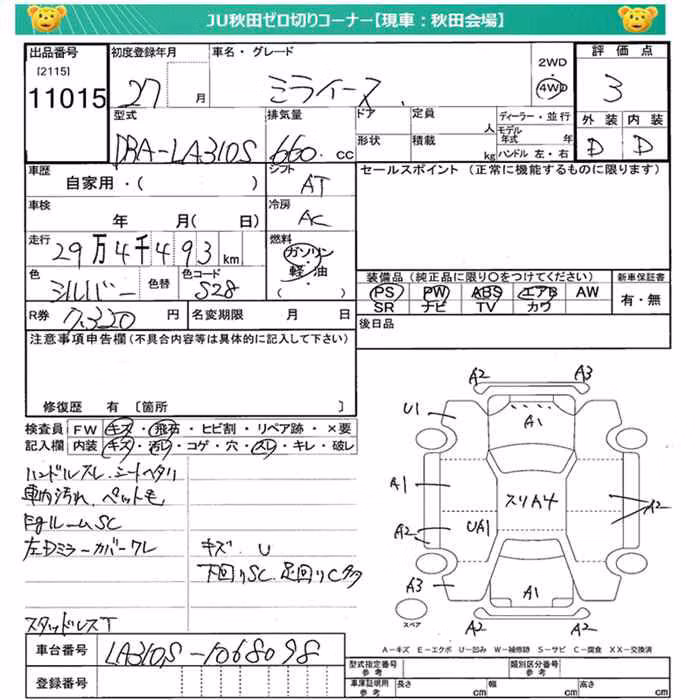 JU秋田ゼロ切りコーナー【現車：秋田会場】
出品番号
[2115]
11015
初度登録年月
27 月
車名・グレード
ミライース
2WD
4WD
評価点
3
外装 内装
D D
型式
DBA-LA310S
排気量
660. cc
ドア
定員 人
形状
積載 kg
ディーラー・並行
モデル年式 年
ハンドル 左・右
車歴
自家用・( )
シフト
AT
セールスポイント (正常に機能するものに限ります)
車検
年 月( 日)
冷房
AC
走行
29万4千493 km
燃料
ガソリン
軽・油
( )
色
シルバー
色替
色コード
S28
装備品 (純正品に限り○をつけてください)
PS PW ABS エアB AW
SR ナビ TV カワ
新車保証書
有・無
R券
7.320 円
名変期限 月 日
後日品
注意事項申告欄(不具合内容等は具体的に記入して下さい)
修復歴 有 〔箇所 〕
検査員記入欄
FW キズ・飛石・ヒビ割・リペア跡・×要
内装 キズ・汚レ・コゲ・穴・スレ・キレ・破レ
ハンドルスレ.シートヘタリ
車内汚れ.ペット毛
EgルームSC
左Dミラーカバーワレ
キズ.U
下回りSC.足回りCタタ
スタッドレスT
A2 A3
U1
A1
A1
スリA4
A2
A2
UA1
A3
A1
A2 A2
スペア
A－キズ E－エクボ U－凹み W－補修跡 S－サビ C－腐食 XX－交換済
車台番号
LA310S-1068098
登録番号
型式指定番号
参考
類別区分番号
参考
車庫証明用
参考
長さ cm
幅 cm
高さ cm